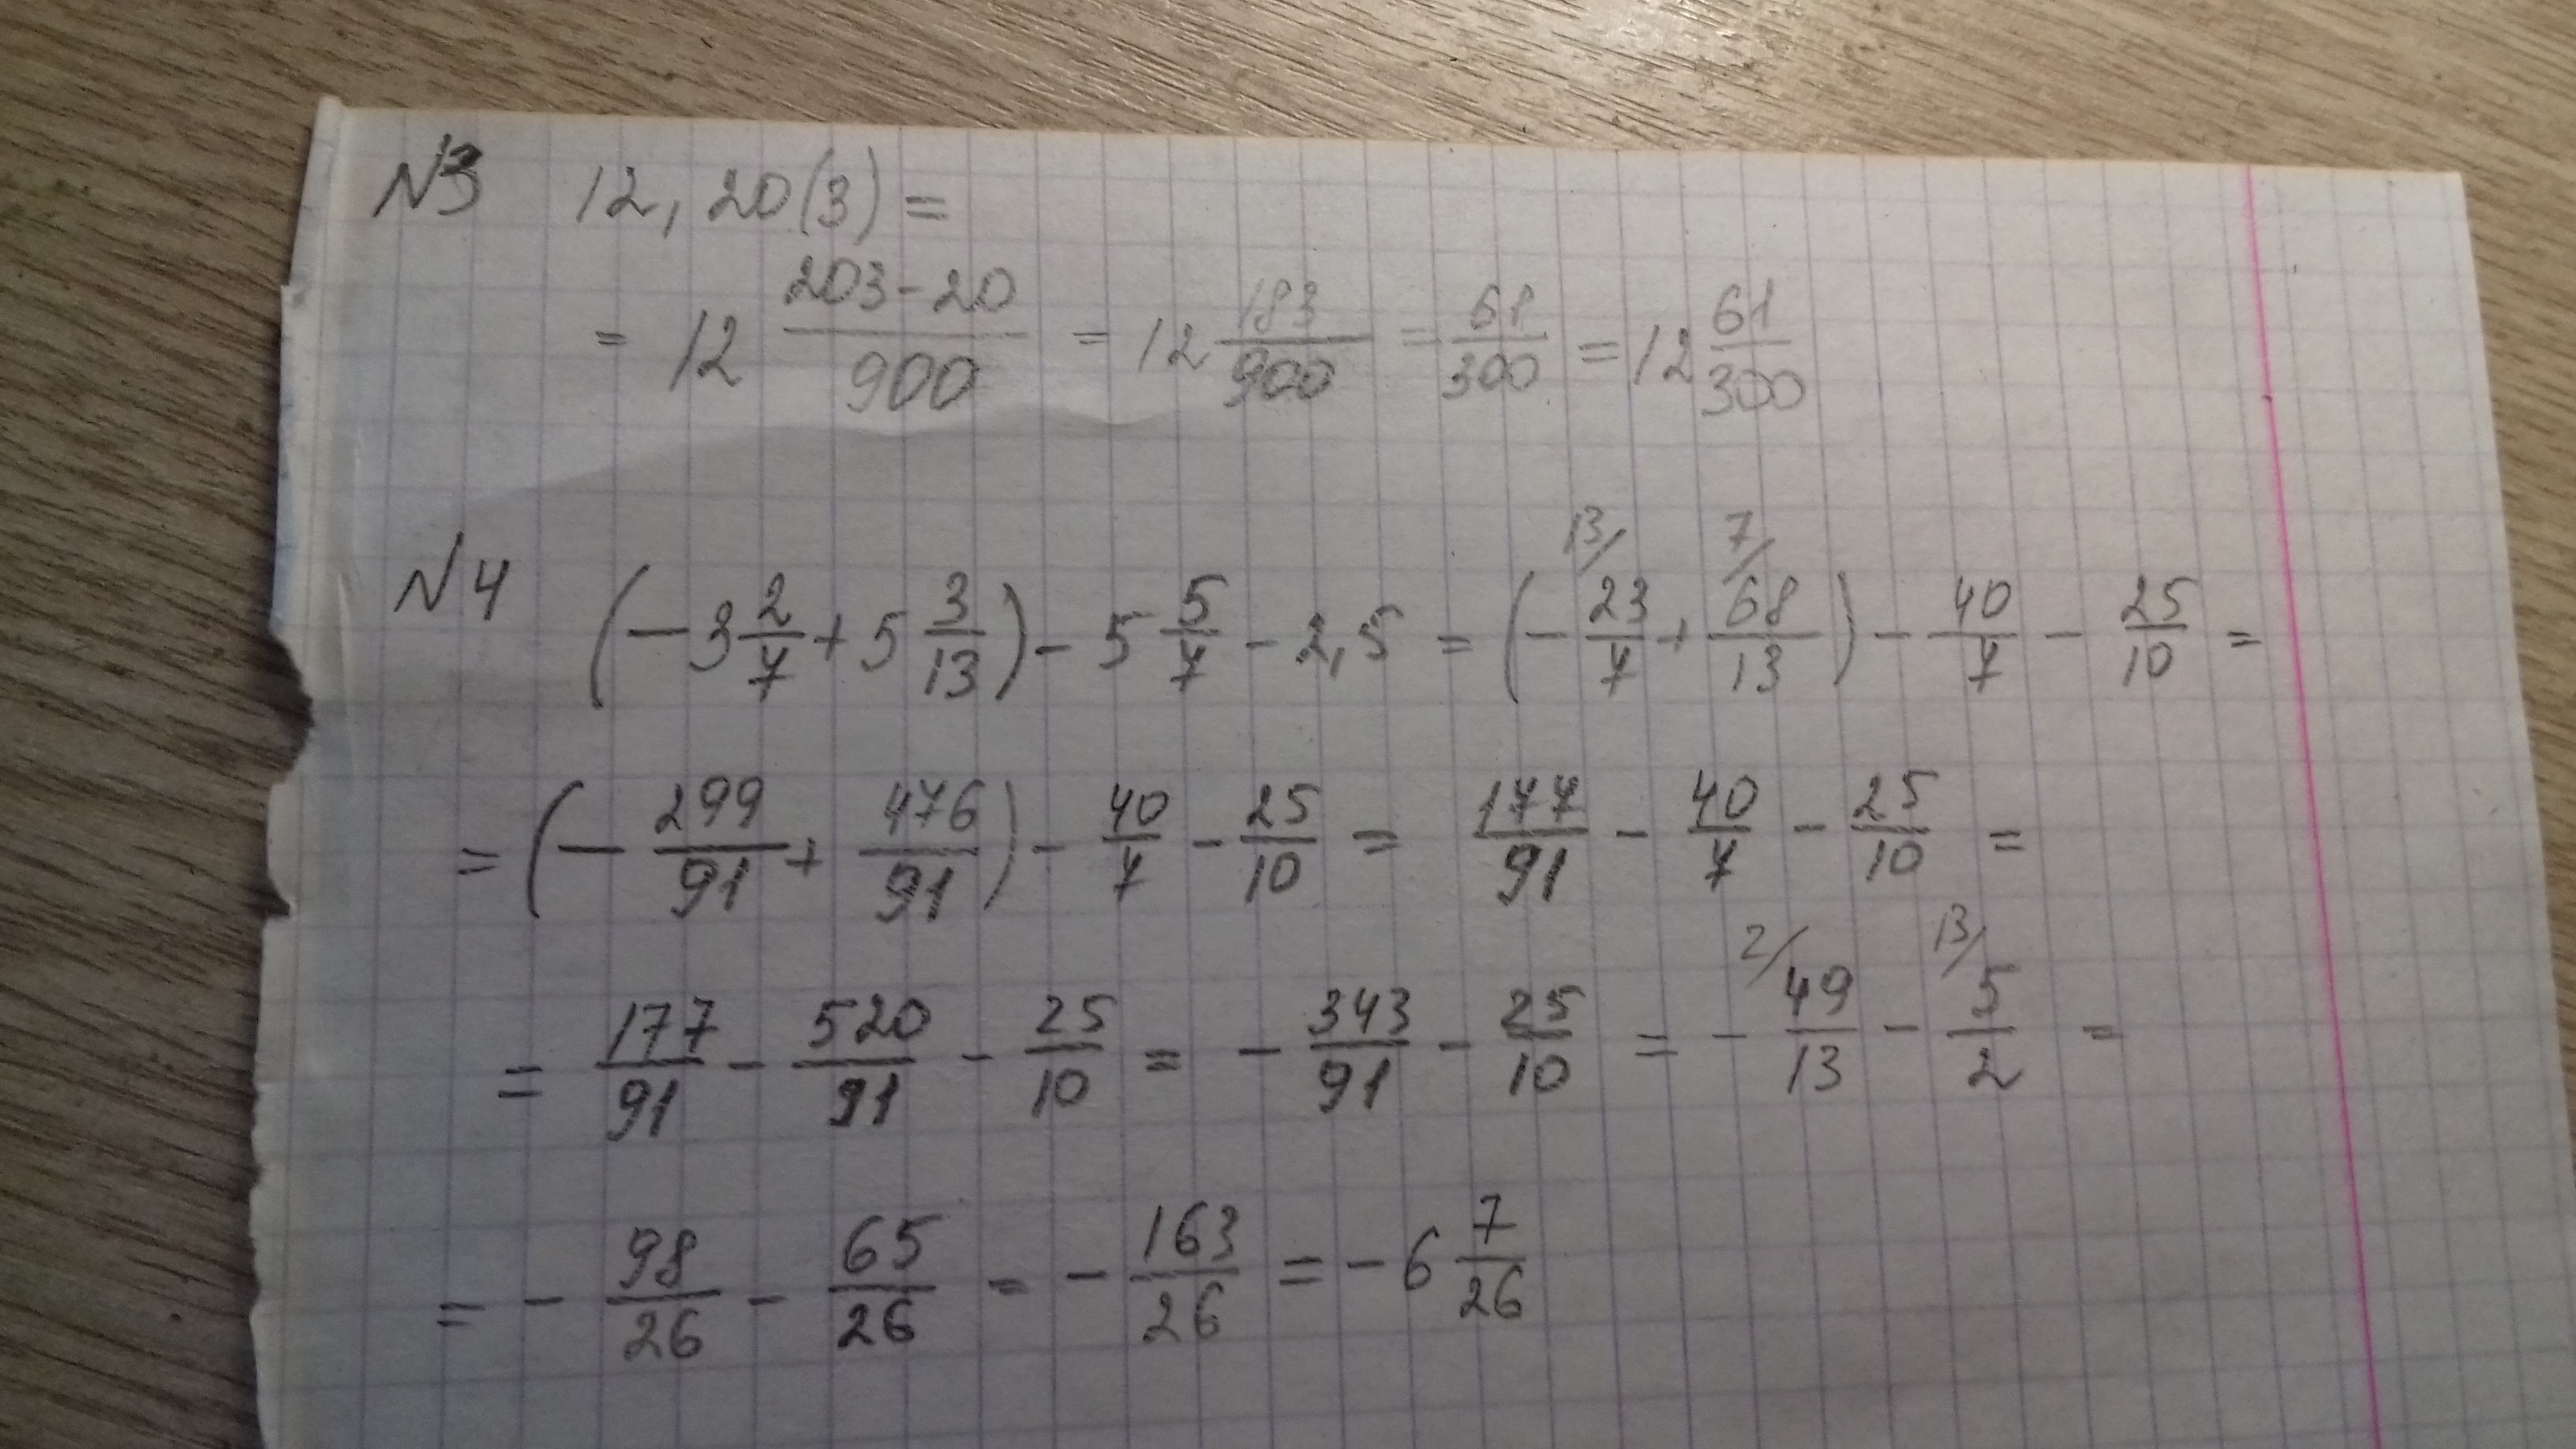 N3 12,20(3) =
= 12 (203-20)/900 = 12 183/900 = 61/300 = 12 61/300
N4 (-3 2/7 + 5 3/13) - 5 5/7 - 2,5 = (- 13/ 23/7 + 7/ 68/13) - 40/7 - 25/10 =
= (- 299/91 + 476/91) - 40/7 - 25/10 = 177/91 - 40/7 - 25/10 =
= 177/91 - 520/91 - 25/10 = - 343/91 - 25/10 = - 2/ 49/13 - 13/ 5/2 =
= - 98/26 - 65/26 = - 163/26 = - 6 7/26